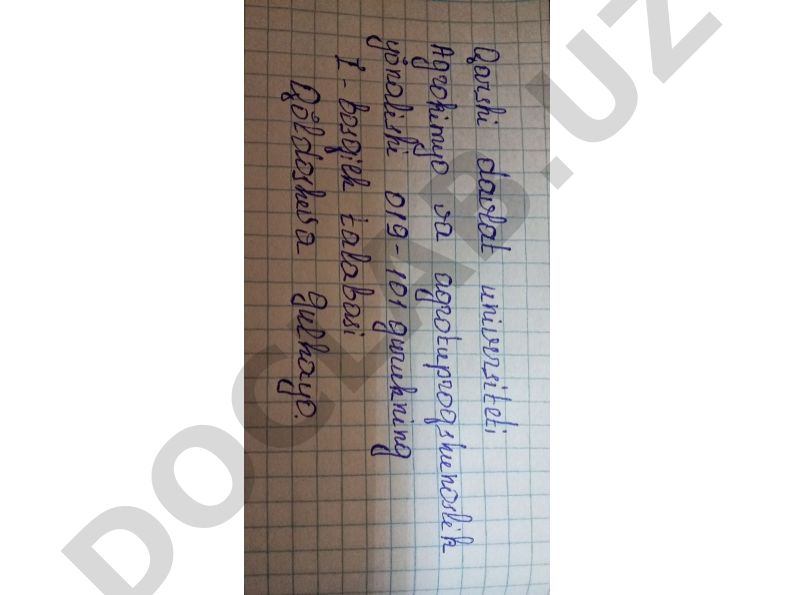 Qarshi davlat universiteti
Agrokimyo va agrotuproqshunoslik
yönalishi 019-101 guruhning
I - bosqich talabasi
Qöldosheva Gulhayo.
DOCLAB.UZ